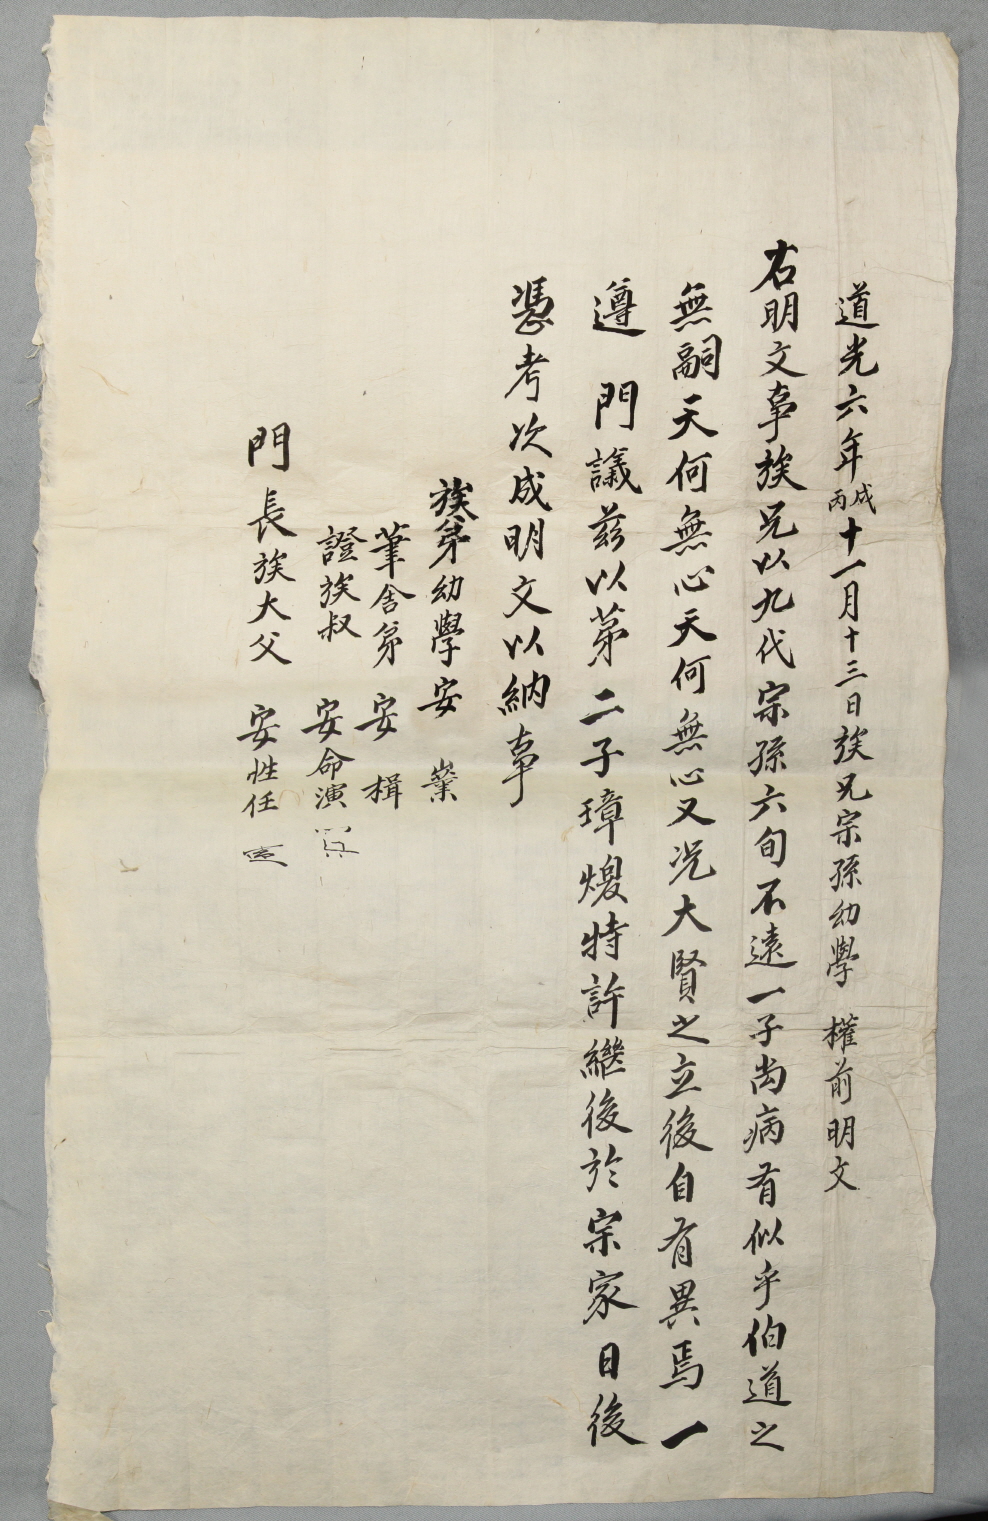 道光六年丙戌十一月十三日族兄宗孫幼學 權前明文
右明文事族兄以九代宗孫六旬不遠一子尚病有似乎伯道之
無嗣天何無心天何無心又况大賢之立後自有異焉一
遵 門議茲以苐二子璋煖特許繼後於宗家日後
憑考次成明文以納事
族弟幼學安 㠓
筆舍弟 安 楫
證族叔 安命演
門長族大父 安性任